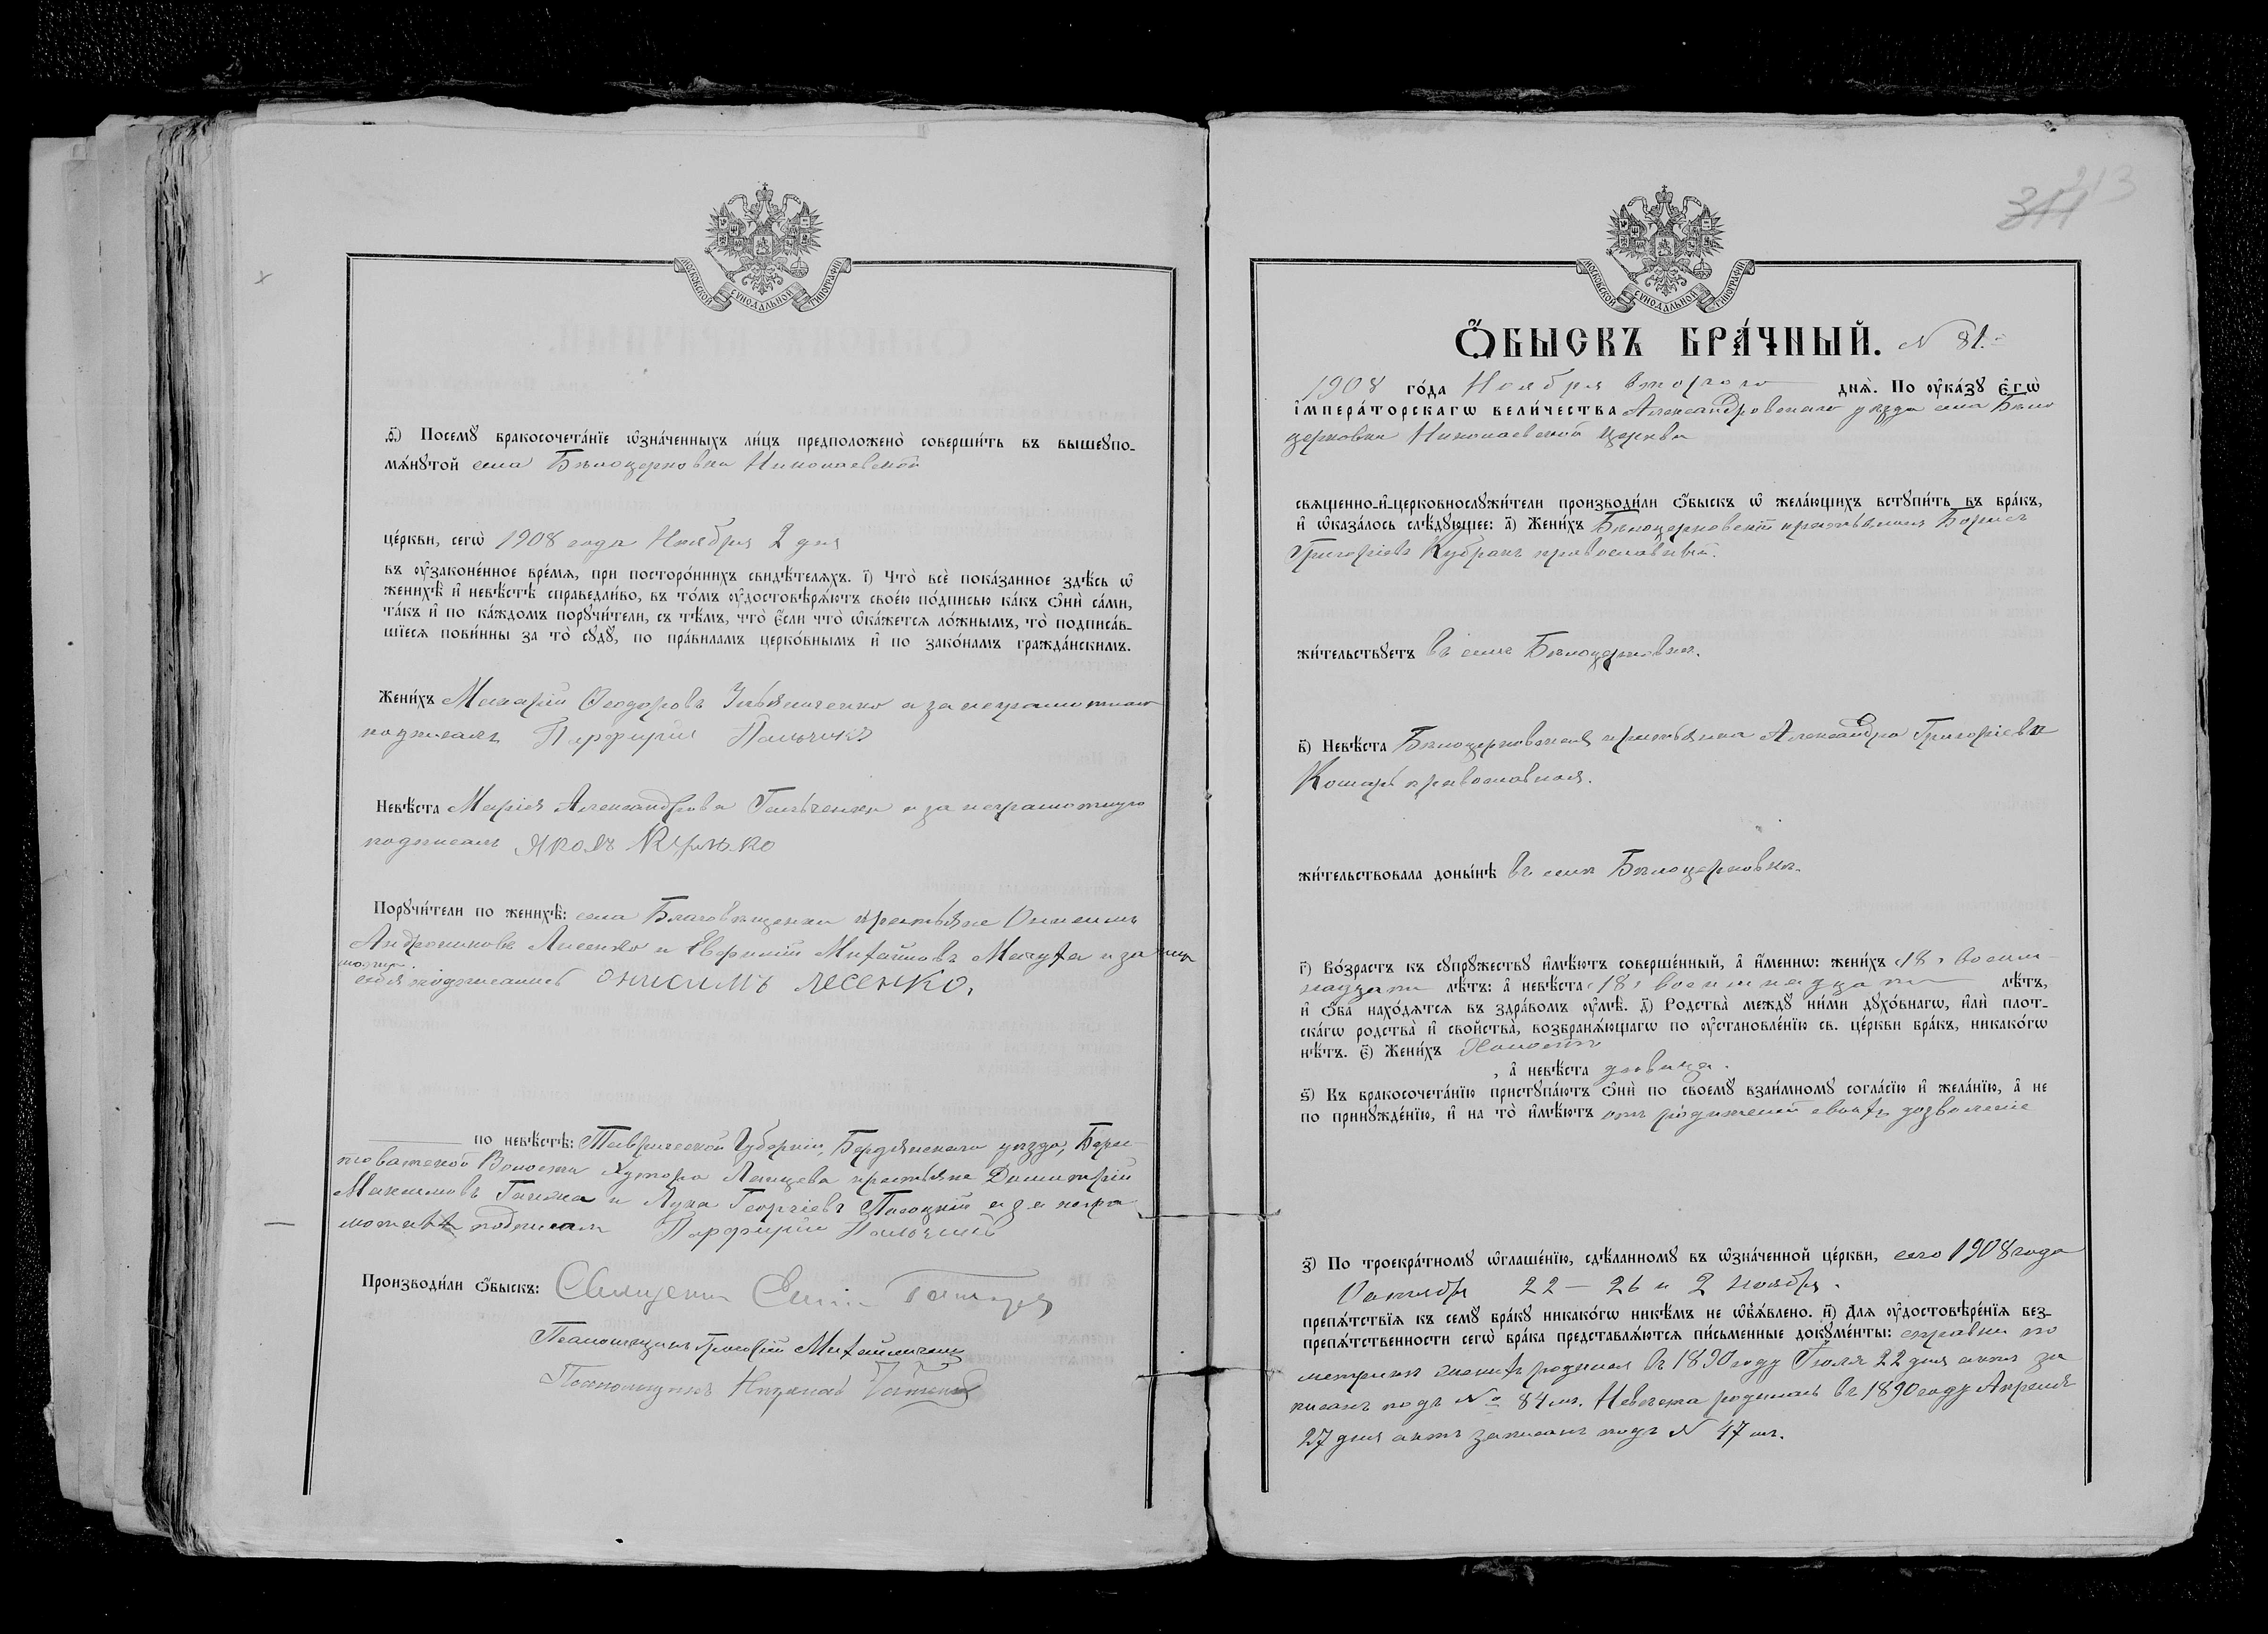 МОСКОВСКОЙ СѴНОДАЛЬНОЙ ТИПОГРАФІИ
ѳ҃) Посемꙋ бракосочета́нїе ѡ҆зна́ченныхъ ли́цъ предположено̀ соверши́ть въ вышеꙋпо-
мѧ́нꙋтой села Бѣлоцерковки Николаевской
це́ркви, сегѡ̀ 1908 года Ноября 2 дня
въ ᲂу҆зако́ненное вре́мѧ, при посторо́ннихъ свидѣ́телѧхъ. і҃) Что̀ всѐ пока́занное здѣ́сь ѡ҆
женихѣ̀ и҆ невѣ́стѣ справедли́во, въ то́мъ ᲂу҆достовѣрѧ́ютъ свое́ю по́дписью ка́къ ѻ҆нѝ са́ми,
та́къ и҆ по ка́ждомъ порꙋчи́тели, съ тѣ́мъ, что̀ є҆́сли что̀ ѡ҆ка́жетсѧ ло́жнымъ, то̀ подписа́в-
шїесѧ пови́нны за то̀ сꙋдꙋ̀, по пра́виламъ церко́внымъ и҆ по зако́намъ гражда́нскимъ.
Жени́хъ Макарій Ѳеодоровъ а за неграмотнаго
подписалъ Порфирій
Невѣ́ста Марія Александрова а за неграмотную
подписалъ Яковъ
Порꙋчи́тели по женихѣ̀: села Благовѣщенки крестьяне Онисимъ
Андрониковъ Лисенко и Евфимій Михайловъ и за негра
мотн.
себя подписалъ Онисимъ Лесенко.
по невѣ́стѣ: Таврической Губерніи, Бердянскаго уѣзда,
Волости Хутора крестьяне Димитрій
Максимовъ и Лука Георгіевъ а за негра
мотныхъ подписалъ Порфирій
Производи́ли ѻ҆́быскъ: Священникъ
Псаломщикъ
Псаломщикъ
313
311
МОСКОВСКОЙ СѴНОДАЛЬНОЙ ТИПОГРАФІИ
Ѻ҆́БЫСКЪ БРА́ЧНЫЙ. N 81.
1908 го́да Ноября второго днѧ̀. По ᲂу҆ка́зꙋ є҆гѡ̀
і҆мпера́торскагѡ вели́чества Александровскаго уѣзда села Бѣло
церковки Николаевской церкви
свѧщенно-и҆-церковнослꙋжи́тели производи́ли ѻ҆́быскъ ѡ҆ жела́ющихъ встꙋпи́ть въ бра́къ,
и҆ ѡ҆каза́лось слѣ́дꙋющее: а҃) Жени́хъ Бѣлоцерковскій крестьянинъ Борисъ
Григоріевъ Кубракъ православный.
жи́тельствꙋетъ въ селѣ Бѣлоцерковкѣ.
в҃) Невѣ́ста Бѣлоцерковская крестьянка Александра Григоріева
Кошарь православная.
жи́тельствовала доны́нѣ въ селѣ Бѣлоцерковкѣ.
г҃) Во́зрастъ къ сꙋпрꙋ́жествꙋ и҆мѣ́ютъ соверше́нный, а҆ и҆́менно: жени́хъ 18, восем-
надцати лѣ́тъ: а҆ невѣ́ста 18, восемнадцати лѣ́тъ,
и҆ ѻ҆́ба нахо́дѧтсѧ въ здра́вомъ ᲂу҆мѣ̀. д҃) Родства̀ междꙋ̀ ни́ми дꙋхо́внагѡ, и҆лѝ плот-
ска́гѡ родства̀ и҆ сво́йства, возбранѧ́ющагѡ по ᲂу҆становле́нїю св. це́ркви бра́къ, никако́гѡ
нѣ́тъ. є҃) Жени́хъ Холостъ
, а҆ невѣ́ста дѣвица.
ѕ҃) Къ бракосочета́нїю пристꙋпа́ютъ ѻ҆нѝ по своемꙋ̀ взаи́мномꙋ согла́сїю и҆ жела́нїю, а҆ не
по принꙋжде́нїю, и҆ на то̀ и҆мѣ́ютъ отъ родителей своихъ дозволеніе
з҃) По троекра́тномꙋ ѡ҆глаше́нїю, сдѣ́ланномꙋ въ ѡ҆зна́ченной це́ркви, сего 1908 года
Октября 22 – 26 и 2 Ноября.
препѧ́тствїѧ къ семꙋ̀ бра́кꙋ никако́гѡ никѣ́мъ не ѡ҆бъѧ́влено. и҃) Длѧ ᲂу҆достовѣре́нїѧ без-
препѧ́тственности сегѡ̀ бра́ка представлѧ́ютсѧ пи́сьменные докꙋме́нты: справки по
метрикѣ женихъ родился въ 1890 году Іюля 22 дня актъ за
писанъ подъ № 84 м. Невѣста родилась въ 1890 году Апрѣля
27 дня актъ записанъ подъ N 47 ж.